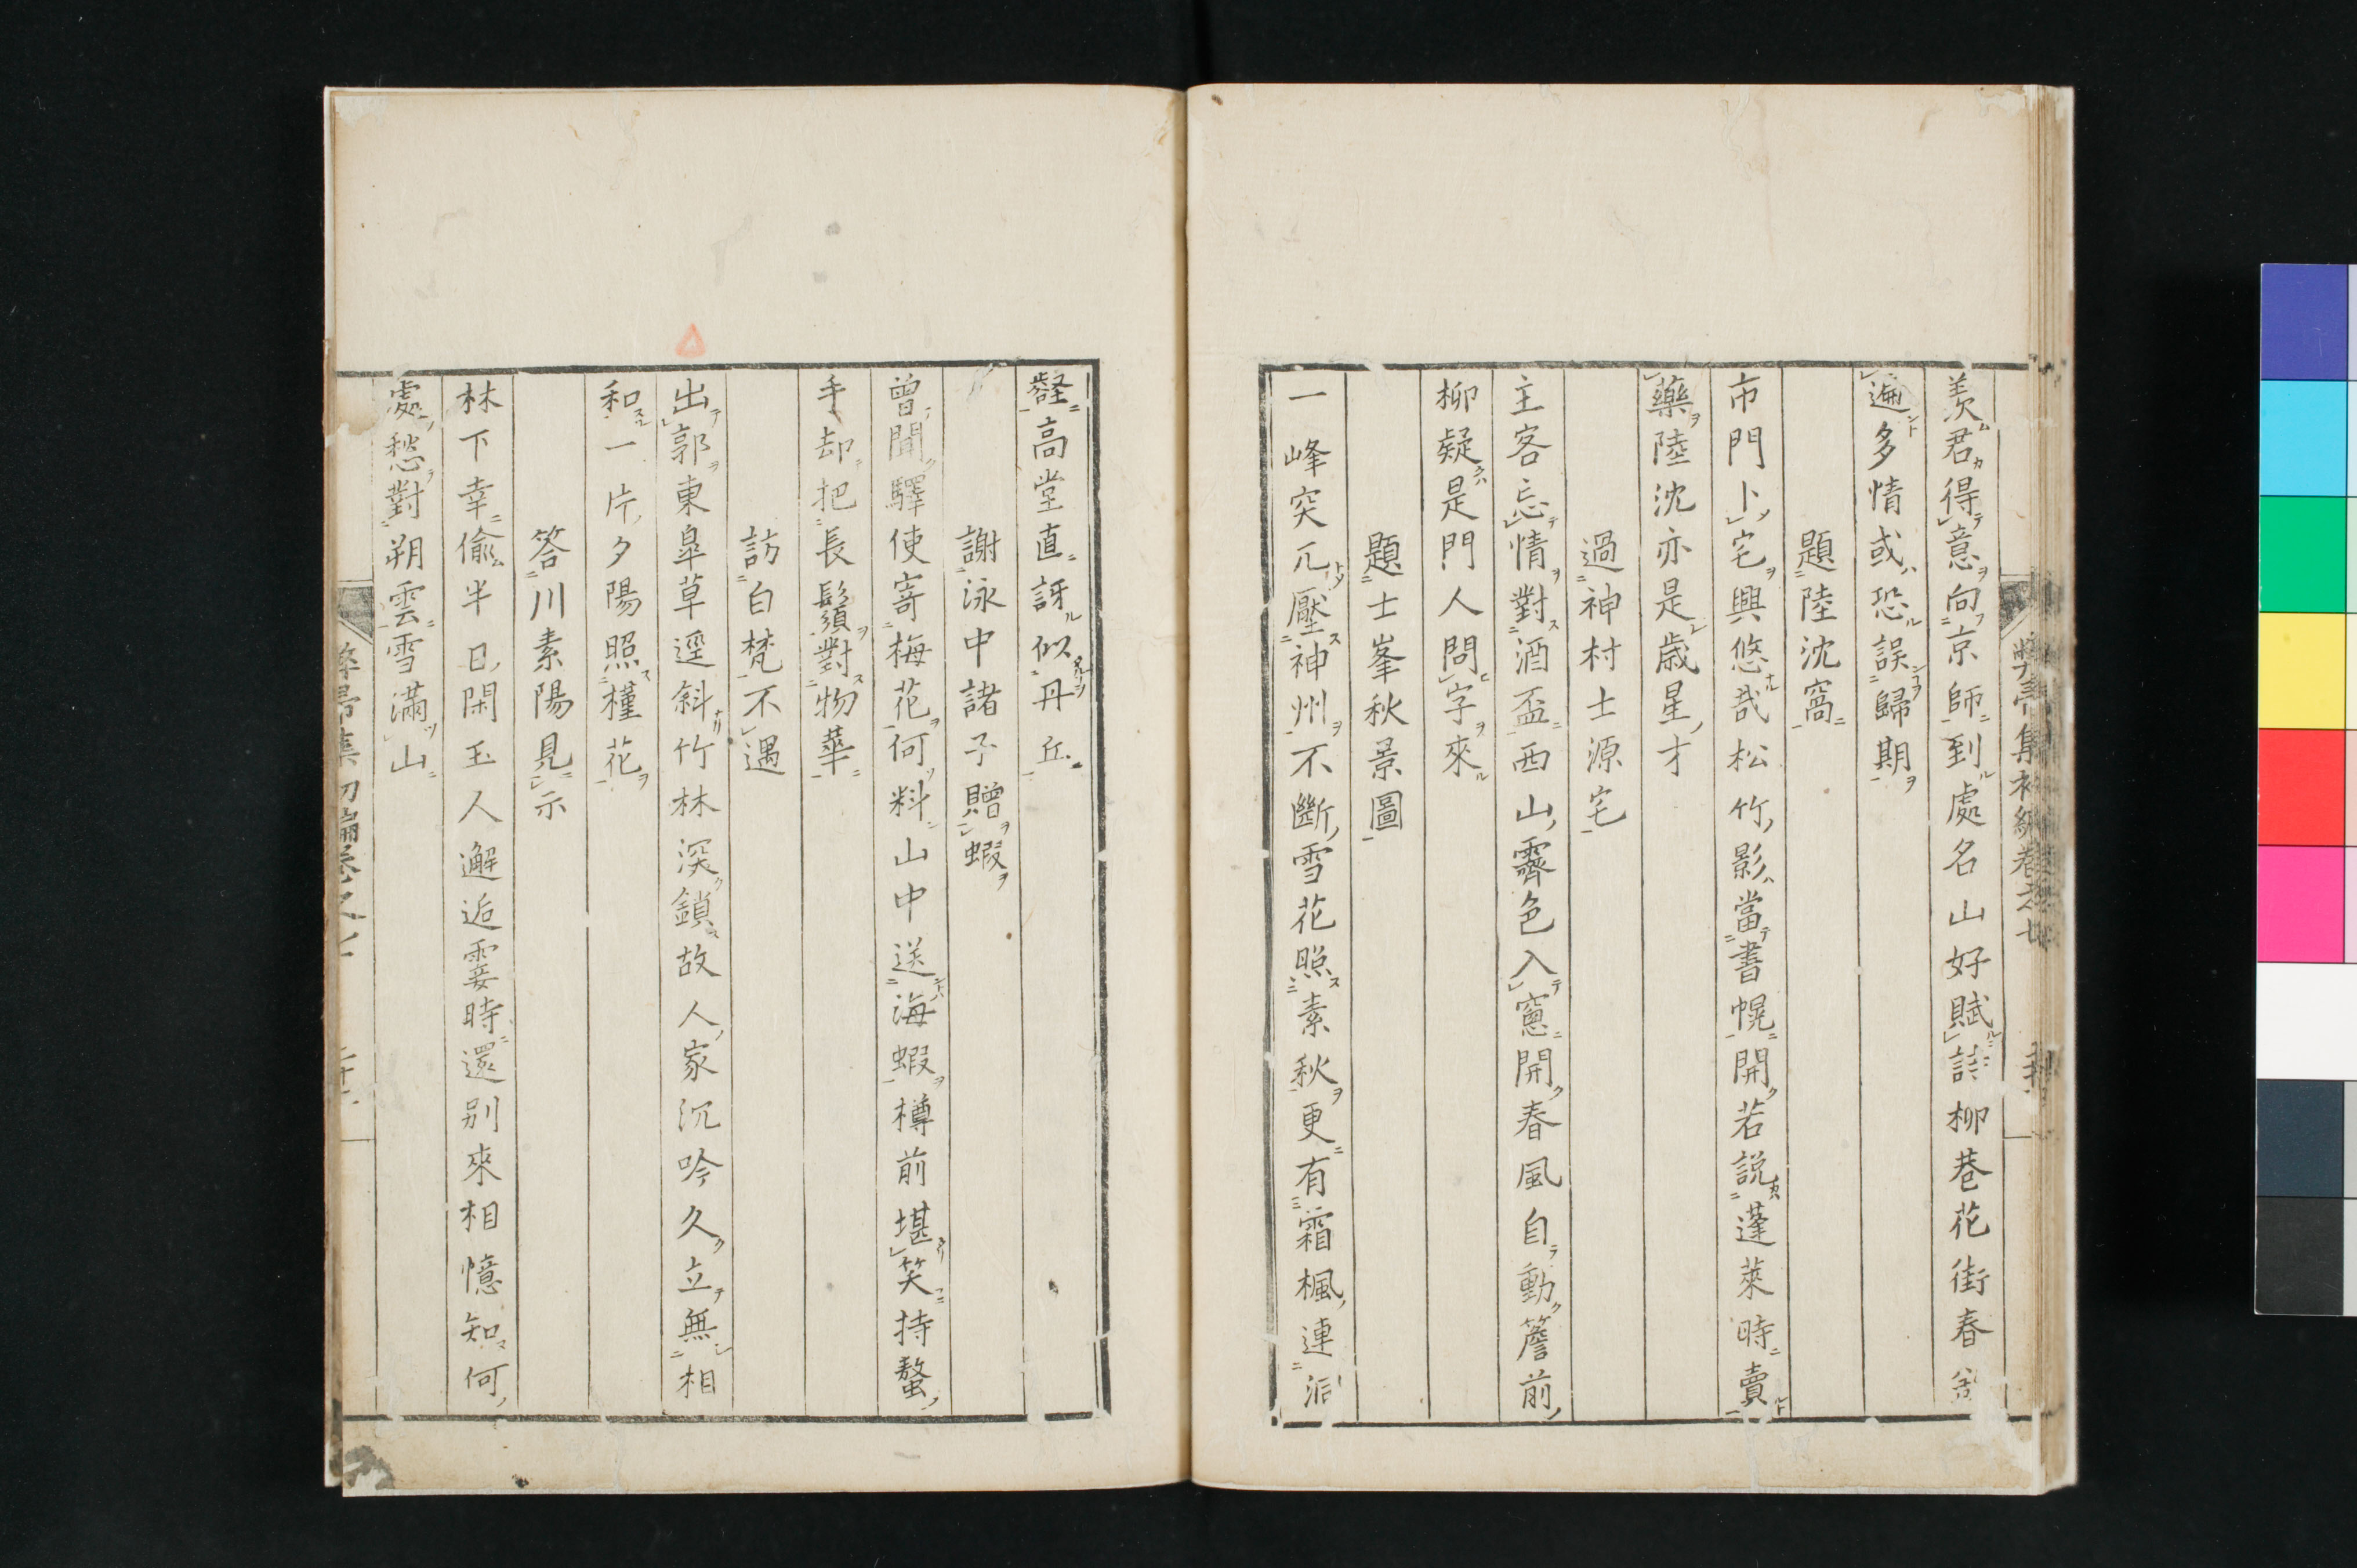 羨君得意向京師到處名山好賦詩柳巷花街春
遍多情或恐誤歸期
題陸沈窩
市門卜宅興悠哉松竹影當書幌開若說蓬萊時賣
藥陸沈亦是歳星才
過神村士源宅
主客忘情對酒盃西山霽色入窻開春風自動簷前
柳疑是門人問字來
題士峯秋景圖
一峰突兀壓神州不斷雪花照素秋更有霜楓連洞
壑高堂直訝似丹丘
謝泳中諸子贈蝦
曾聞驛使寄梅花何料山中送海蝦樽前堪笑持螯
手却把長鬚對物華
訪白梵不遇
出郭東皐草逕斜竹林深鎖故人家沉吟久立無相
和一片夕陽照槿花
答川素陽見示
林下幸偸半日閑玉人邂逅霎時還別來相憶知何
處愁對朔雲雪滿山